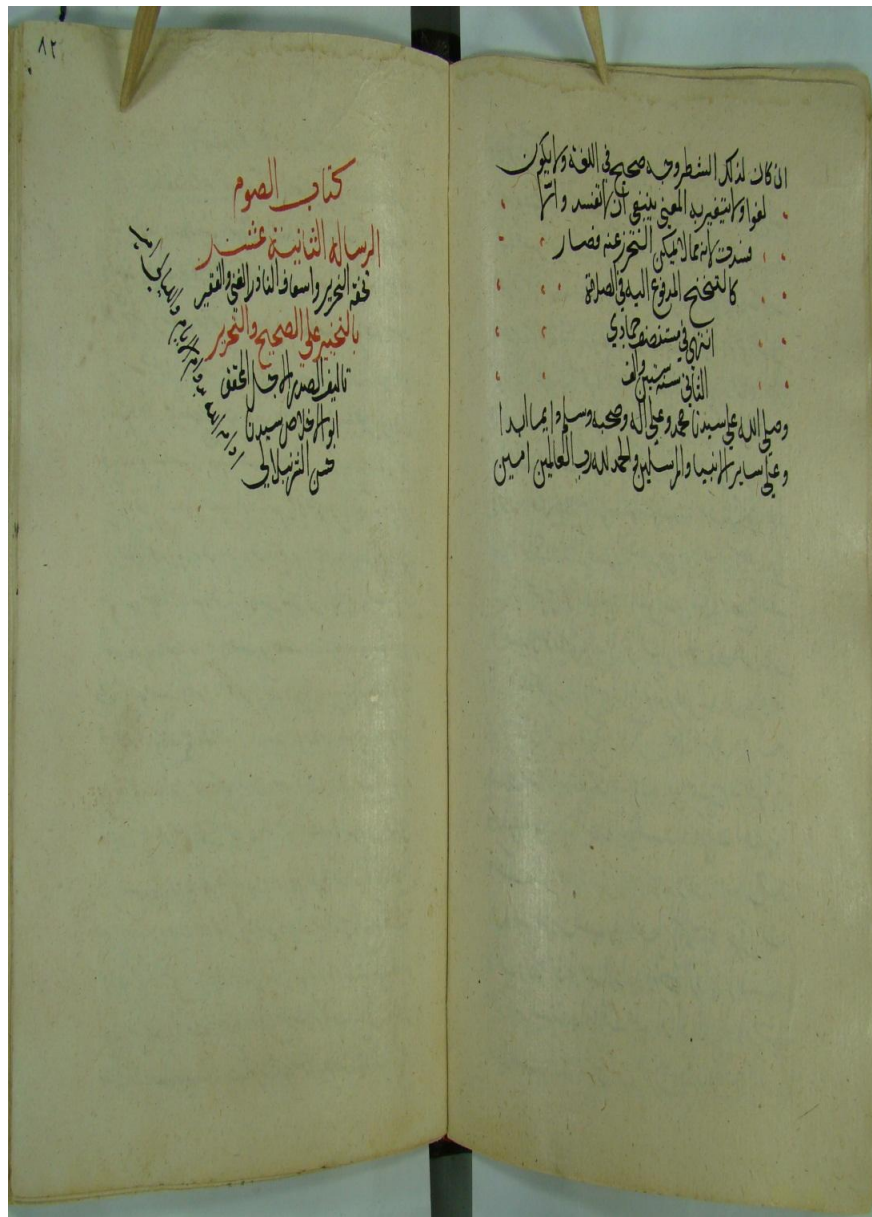 ان كان لذلك الشطر وجه صحيح في اللغة ولا يكون
لغوا ولا يتغير به المعنى ينبغي ان لا تفسد وانها
فسدت لانه مما لا يمكن التحرز عنه فصار
كالتنحنح المدفوع اليه في الصلاة
انتهى في منتصف جمادي
الثاني سنة ستين والف
وصلى الله على سيدنا محمد وعلى اله وصحبه وسلم دايما ابدا
وعلى ساير الانبيا والمرسلين والحمد لله رب العالمين امين
٨٢
كتاب الصوم
الرسالة الثانية عشر
تحفة التحرير واسعاف الناذر الغني والفقير
بالتخيير على الصحيح والتحرير
تاليف الصدر الاجل المحقق
ابو الاخلاص سيدنا
حسن الشرنبلالي